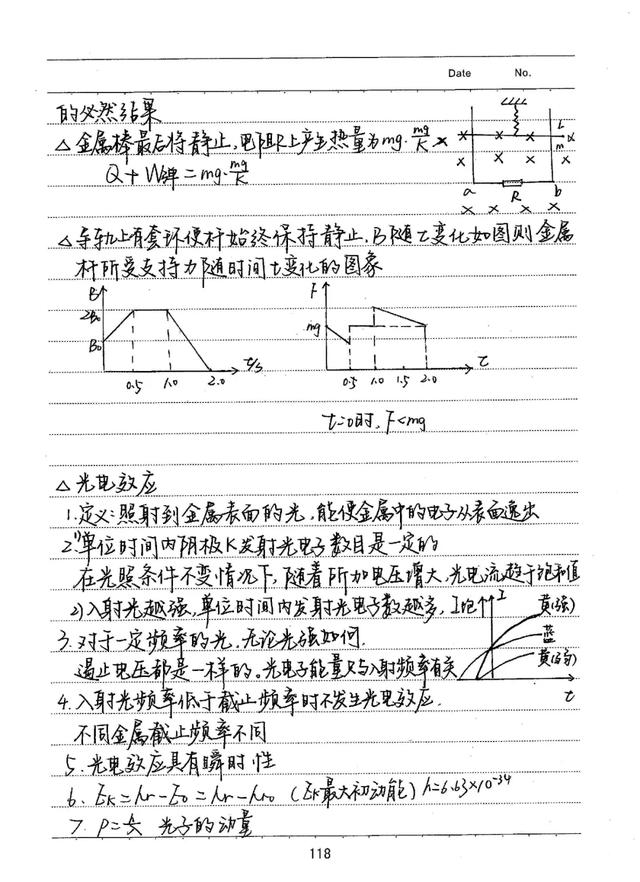 Date No.
的必然结果
△金属棒最后将静止,电阻R上产生热量为mg·mg/K
Q+W弹=mg·mg/K
L
m
a R b
△导轨上有套环使杆始终保持静止,B随t变化如图则金属
杆所受支持力随时间t变化的图象
B
2B₀
B₀
0.5 1.0 2.0 t/s
F
mg
0.5 1.0 1.5 2.0 t
t=0时,F<mg
△光电效应
1.定义:照射到金属表面的光,能使金属中的电子从表面逸出
2.1)单位时间内阴极K发射光电子数目是一定的
在光照条件不变情况下,随着所加电压增大,光电流趋于饱和值
2)入射光越强,单位时间内发射光电子数越多,I饱↑
3.对于一定频率的光,无论光强如何,
遏止电压都是一样的。光电子能量只与入射频率有关
I
黄(强)
蓝
黄(弱)
t
4.入射光频率低于截止频率时不发生光电效应.
不同金属截止频率不同
5.光电效应具有瞬时性
6.Ek=hν-E₀=hν-hν₀ (Ek最大初动能) h=6.63×10⁻³⁴
7.P=h/λ 光子的动量
118